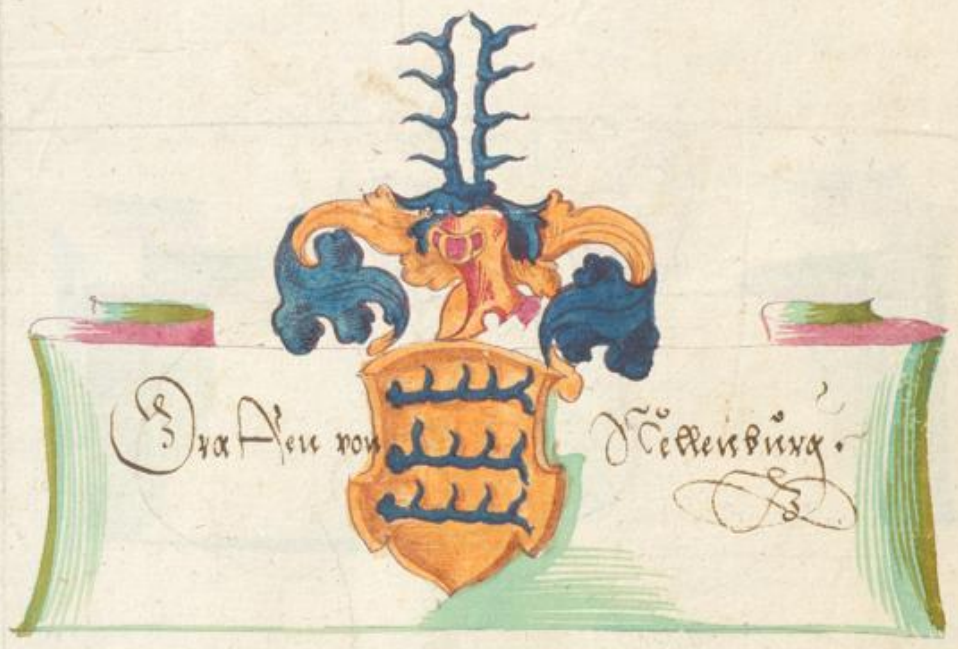 Graffen von Nellenburg.